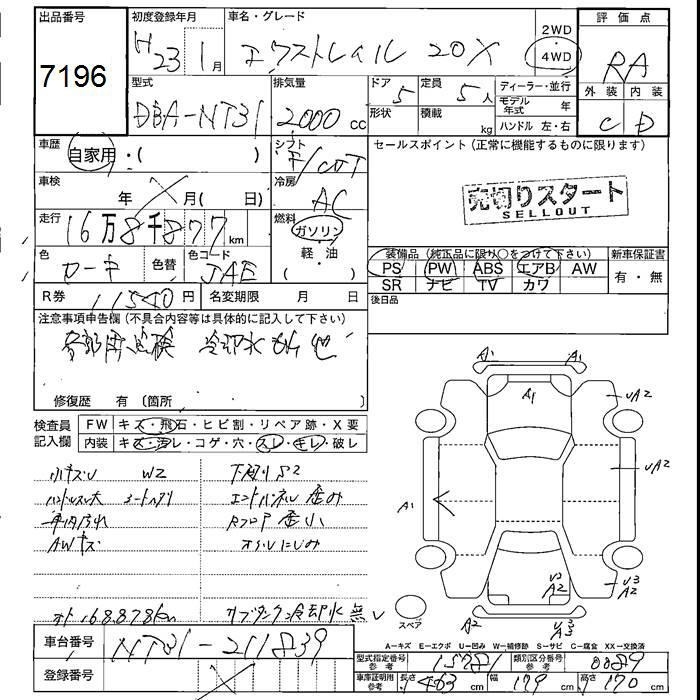 出品番号
7196
初度登録年月
H23 1月
車名・グレード
エクストレイル 20X
2WD
・
4WD
評価点
RA
外装 内装
C D
型式
DBA-NT31
排気量
2000 cc
ドア 5
定員 5人
形状
積載 kg
ディーラー・並行
モデル年式 年
ハンドル 左・右
車歴
自家用・( )
シフト
F/COT
セールスポイント(正常に機能するものに限ります)
売切りスタート
SELLOUT
車検
年 月( 日)
冷房
AC
走行
16万8千877km
燃料
ガソリン
・
軽・油
( )
色
色替
色コード
JAE
装備品(純正品に限り○をつけて下さい)
PS PW ABS エアB AW
SR ナビ TV カワ
新車保証書
有・無
R券 11540円
名変期限 月 日
後日品
注意事項申告欄(不具合内容等は具体的に記入して下さい)
冷却水もれ 他
修復歴 有 (箇所 )
検査員
記入欄
FW キズ・飛石・ヒビ割・リペア跡・X要
内装 キズ・汚レ・コゲ・穴・スレ・キレ・破レ
小キズU W2
下廻りS2
ハンドルスレ大 シートヘタリ
エンドパネル歪み
車内汚れ
Rフロア歪小
AWキズ
オイルにじみ
メーター168,878km
サブタンク冷却水無し
A1
A1
A1
UA2
UA2
A1
U3
A2
U3
A2
A2
U3
A3
スペア
A-キズ E-エクボ U-凹み W-補修跡 S-サビ C-腐食 XX-交換済
車台番号
NT31-211839
登録番号
型式指定番号
参考
15781
類別区分番号
参考
0089
車庫証明用
参考
長さ 463cm
幅 179cm
高さ 170cm